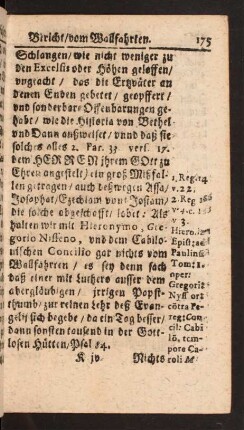 Bericht/vom Wallfahrten. 175
Schlangen/wie nicht weniger zu
den Excelsis oder Höhen geloffen/
vngeacht / das die Ertzväter an
denen Enden gebetet/geopffert/
vnd sonderbare Offenbarungen ge-
habt/wie die Historia von Bethel
vnd Dann außweiset/vnnd daß sie
solches alles 2. Par. 33 vers. 17.
dem HERREN ihrem GOtt zu
Ehren angestelt/ein groß Mißfal-
len getragen/auch deßwegen Assa/
Josaphat/Ezechiam vnnd Josiam/
die solche abgeschafft/lobet: Als
halten wir mit Hieronymo, Gre-
gorio Nisseno, vnd dem Cabilo-
nischen Concilio gar nichts vom
Wallfahrten / es sey denn sach
daß einer mit Luthero ausser dem
abergläubigen/ jrrigen Papst-
thumb/ zur reinen Lehr deß Evan-
gelij sich begebe/da ein Tag besser/
dann sonsten tausend in der Gott-
losen Hütten/Psal 84.
K iv. Nichts
1. Reg. 14
v. 22.
2. Reg.
v. 3
Hieron.
Epist. ad
Paulin.
Tom: 1.
oper:
Gregori9
Nyss. orat
cōtra Pe-
reg: Con-
cil: Cabi
lō, tem-
pore Ca-
roli M